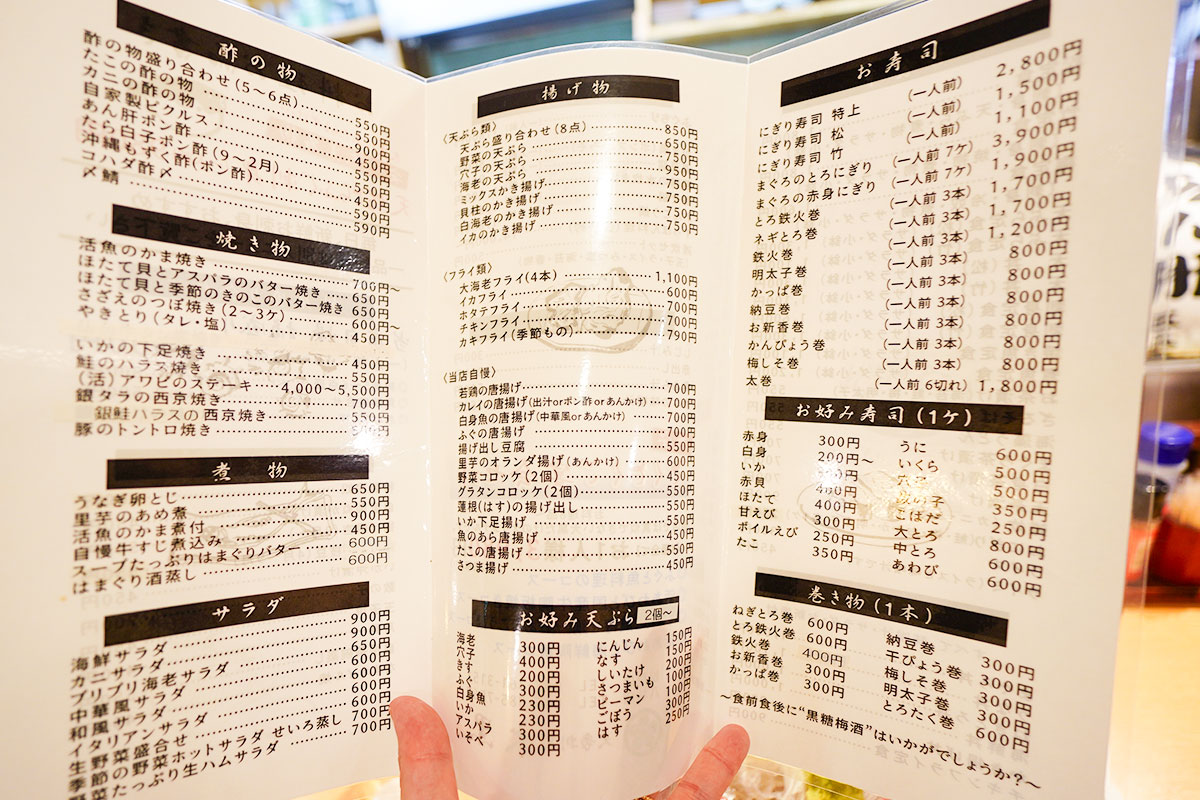 酢の物
酢の物盛り合わせ(5〜6点)
たこの酢の物 550円
カニの酢の物 550円
自家製ピクルス 900円
あん肝ポン酢 450円
たら白子ポン酢(9〜2月)
沖縄もずく酢(ポン酢)
コハダ酢〆 590円
〆鯖 590円
焼き物
活魚のかま焼き 700円〜
ほたて貝とアスパラのバター焼き 650円
ほたて貝と季節のきのこのバター焼き 650円
さざえのつぼ焼き(2〜3ケ) 600円〜
やきとり(タレ・塩) 450円
いかの下足焼き 450円
鮭のハラス焼き 550円
(活)アワビのステーキ 4,000〜5,500円
銀タラの西京焼き 700円
銀鮭ハラスの西京焼き 550円
豚のトントロ焼き 550円
煮物
うなぎ卵とじ 650円
里芋のあめ煮 550円
活魚のかま煮付 900円
自慢牛すじ煮込み 450円
スープたっぷりはまぐりバター 600円
はまぐり酒蒸し 600円
サラダ
海鮮サラダ 900円
カニサラダ 900円
プリプリ海老サラダ 650円
中華風サラダ 600円
和風サラダ 600円
イタリアンサラダ 600円
生野菜盛合せ 600円
季節の野菜ホットサラダ せいろ蒸し 700円
野菜たっぷり生ハムサラダ 700円
揚げ物
〈天ぷら類〉
天ぷら盛り合わせ(8点) 850円
野菜の天ぷら 650円
穴子の天ぷら 750円
海老の天ぷら 950円
ミックスかき揚げ 750円
貝柱のかき揚げ 750円
白海老のかき揚げ 750円
イカのかき揚げ 750円
〈フライ類〉
大海老フライ(4本) 1,100円
イカフライ 600円
ホタテフライ 700円
チキンフライ 700円
カキフライ(季節もの) 790円
〈当店自慢〉
若鶏の唐揚げ 700円
カレイの唐揚げ(出汁orポン酢orあんかけ) 700円
白身魚の唐揚げ(中華風orあんかけ) 700円
ふぐの唐揚げ 700円
揚げ出し豆腐 550円
里芋のオランダ揚げ(あんかけ) 600円
野菜コロッケ(2個) 450円
グラタンコロッケ(2個) 550円
蓮根(はす)の揚げ出し 550円
いか下足揚げ 550円
魚のあら揚げ 450円
たこの唐揚げ 550円
さつま揚げ 450円
お好み天ぷら 2個〜
海老 300円
穴子 400円
きす 200円
ふぐ 300円
白身魚 230円
いか 230円
アスパラ 300円
いそべ 300円
にんじん 150円
なす 150円
しいたけ 200円
さつまいも 100円
ピーマン 100円
ごぼう 300円
はす 250円
お寿司
にぎり寿司 特上 (一人前) 2,800円
にぎり寿司 松 (一人前) 1,500円
にぎり寿司 竹 (一人前) 1,100円
まぐろのとろにぎり (一人前 7ケ) 3,900円
まぐろの赤身にぎり (一人前 7ケ) 1,900円
とろ鉄火巻 (一人前 3本) 1,700円
ネギとろ巻 (一人前 3本) 1,700円
鉄火巻 (一人前 3本) 1,200円
明太子巻 (一人前 3本) 800円
かっぱ巻 (一人前 3本) 800円
納豆巻 (一人前 3本) 800円
お新香巻 (一人前 3本) 800円
かんぴょう巻 (一人前 3本) 800円
梅しそ巻 (一人前 3本) 800円
太巻 (一人前 6切れ) 1,800円
お好み寿司(1ケ)
赤身 300円
白身 200円〜
いか
赤貝 400円
ほたて 400円
甘えび 300円
ボイルえび 250円
たこ 350円
うに 600円
いくら 500円
穴子 500円
数の子 350円
こはだ 250円
大とろ 800円
中とろ 600円
あわび 600円
巻き物(1本)
ねぎとろ巻 600円
とろ鉄火巻 600円
鉄火巻 400円
お新香巻 300円
かっぱ巻 300円
納豆巻 300円
干ぴょう巻 300円
梅しそ巻 300円
明太子巻 300円
とろたく巻 600円
〜食前食後に"黒糖梅酒"はいかがでしょうか?〜